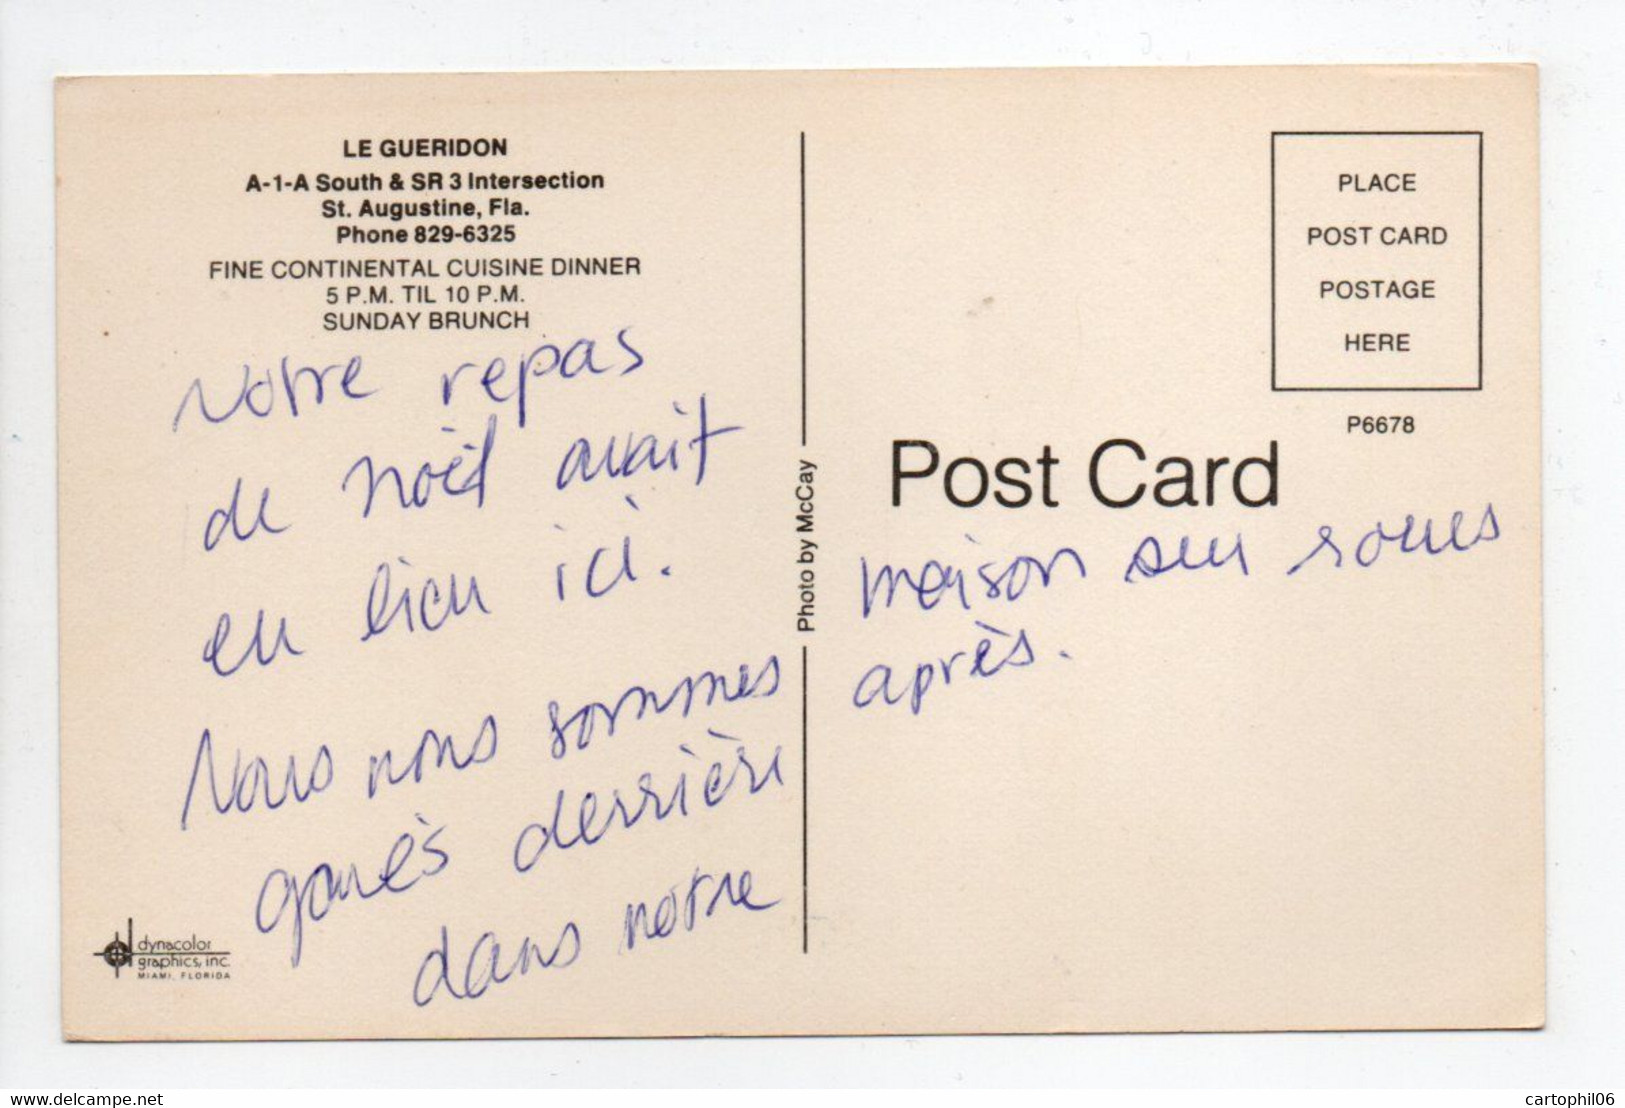 LE GUERIDON
A-1-A South & SR 3 Intersection
St. Augustine, Fla.
Phone 829-6325
FINE CONTINENTAL CUISINE DINNER
5 P.M. TIL 10 P.M.
SUNDAY BRUNCH
Notre repas
de Noël avait
eu lieu ici.
Nous nous sommes
garés derrière
dans notre
dynacolor
graphics, inc.
MIAMI, FLORIDA
Photo by McCay
PLACE
POST CARD
POSTAGE
HERE
P6678
Post Card
maison sur roues
après.
delcampe.net
cartophil06